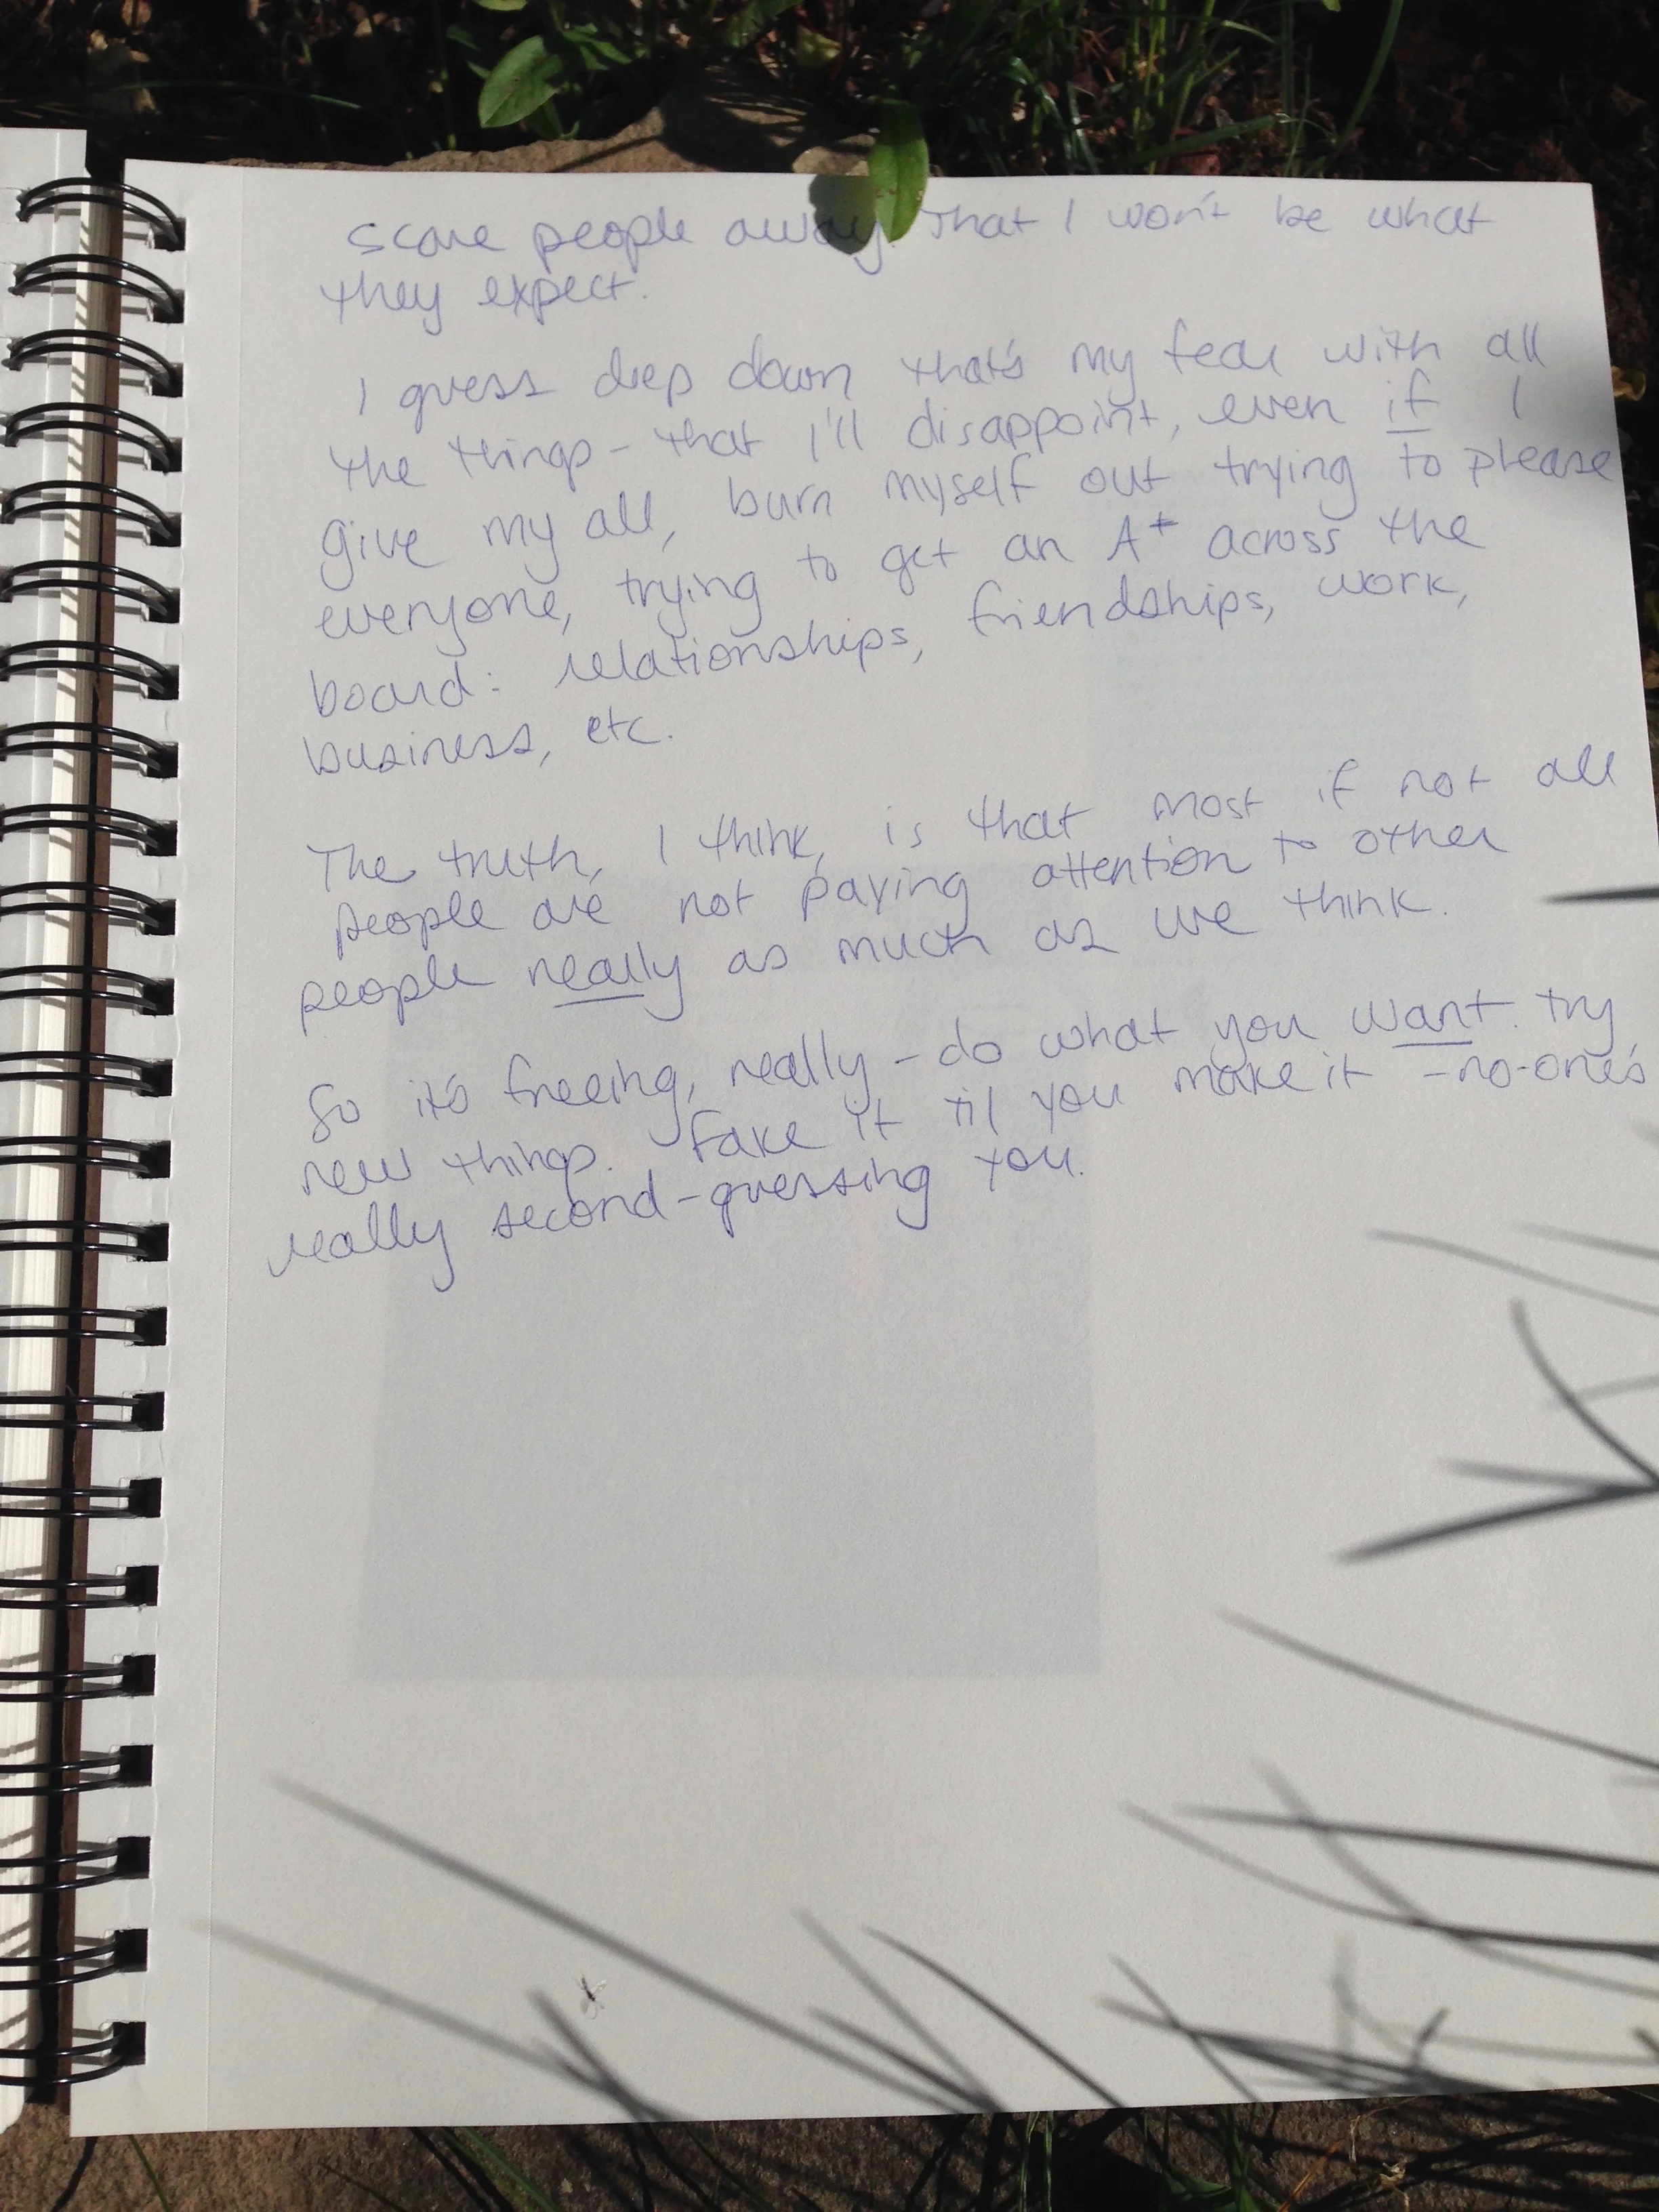 scare people away. That I won't be what
they expect.
I guess deep down that's my fear with all
the things - that I'll disappoint, even if I
give my all, burn myself out trying to please
everyone, trying to get an A+ across the
board: relationships, friendships, work,
business, etc.
The truth, I think, is that most if not all
people are not paying attention to other
people really as much as we think.
So it's freeing, really - do what you want. try
new things. Fake it 'til you make it - no-one's
really second-guessing you.